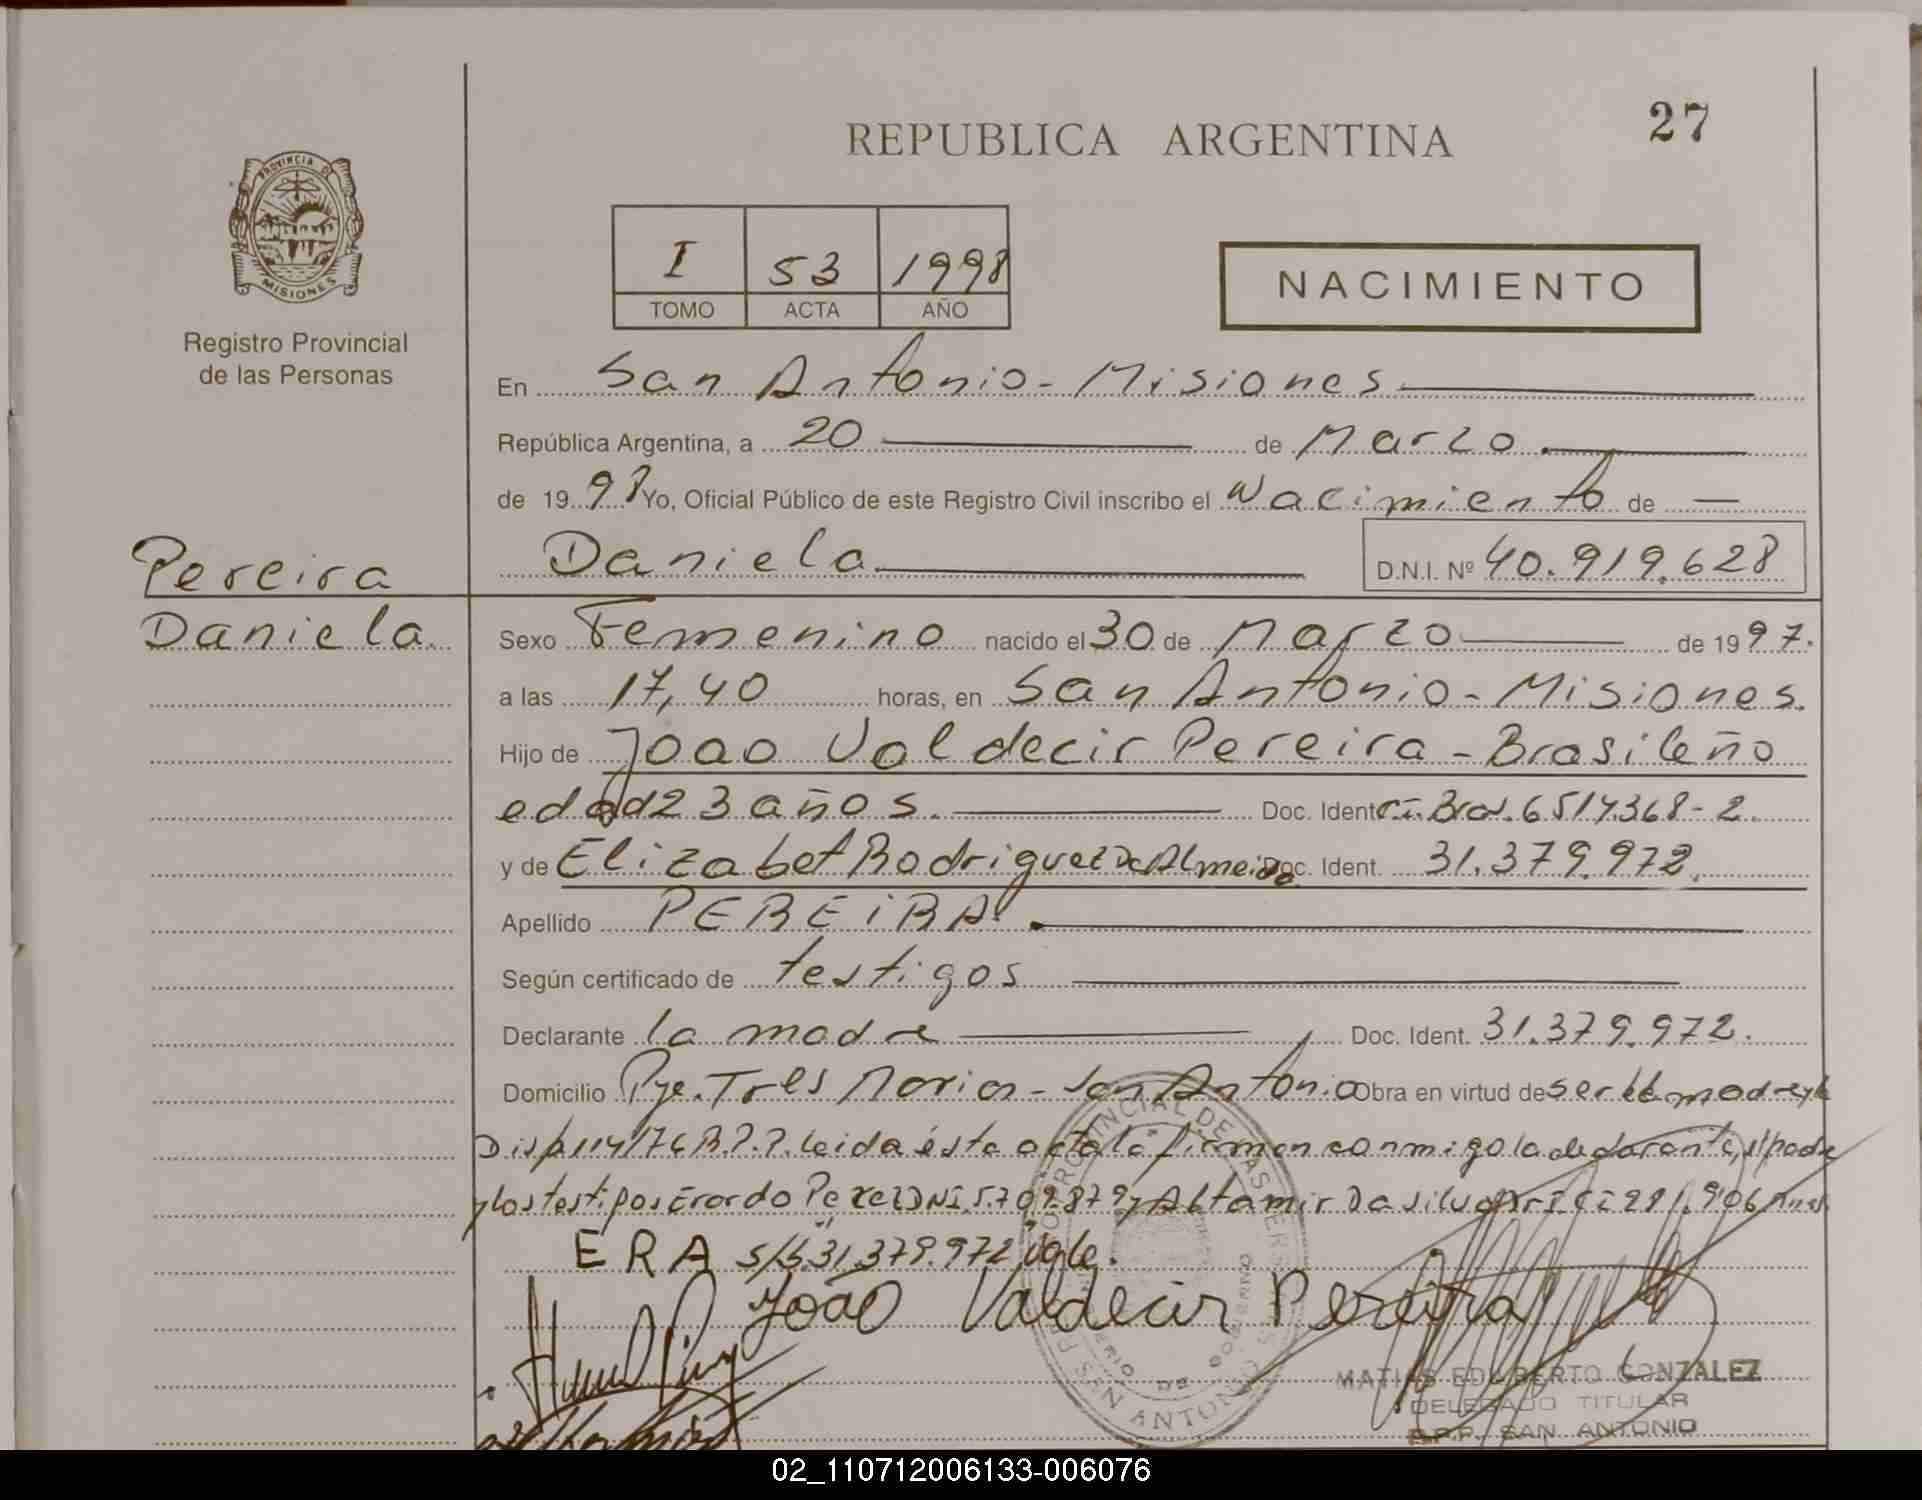 27
REPUBLICA ARGENTINA
PROVINCIA DE
MISIONES
Registro Provincial
de las Personas
I 53 1998
TOMO ACTA AÑO
NACIMIENTO
En San Antonio - Misiones
República Argentina, a 20 de Marzo
de 1998 Yo, Oficial Público de este Registro Civil inscribo el Nacimiento de
Daniela D.N.I. Nº 40.919.628
Pereira
Daniela
Sexo Femenino nacido el 30 de Marzo de 1997.
a las 17,40 horas, en San Antonio - Misiones.
Hijo de Joao Valdecir Pereira - Brasileño
edad 23 años. Doc. Ident. C.I. Bras. 6517.368-2.
y de Elizabet Rodriguez De Almeida Doc. Ident. 31.379.972.
Apellido PEREIRA.
Según certificado de testigos
Declarante la madre Doc. Ident. 31.379.972.
Domicilio Pje. Tres Marias - San Antonio Obra en virtud de ser la madre y la
Disp. 114/76 R.P.P. leida ésta acta la firman conmigo la declarante, el padre
y los testigos Erardo DNI 5.709.879 y Altamir Da Silva CI 281.906
ERA s/b 31.379.972 Vale.
João Valdecir Pereira
REGISTRO PROVINCIAL DE LAS PERSONAS
SAN ANTONIO
MATIAS EDILBERTO GONZALEZ
DELEGADO TITULAR
R.P.P. SAN ANTONIO
02_110712006133-006076